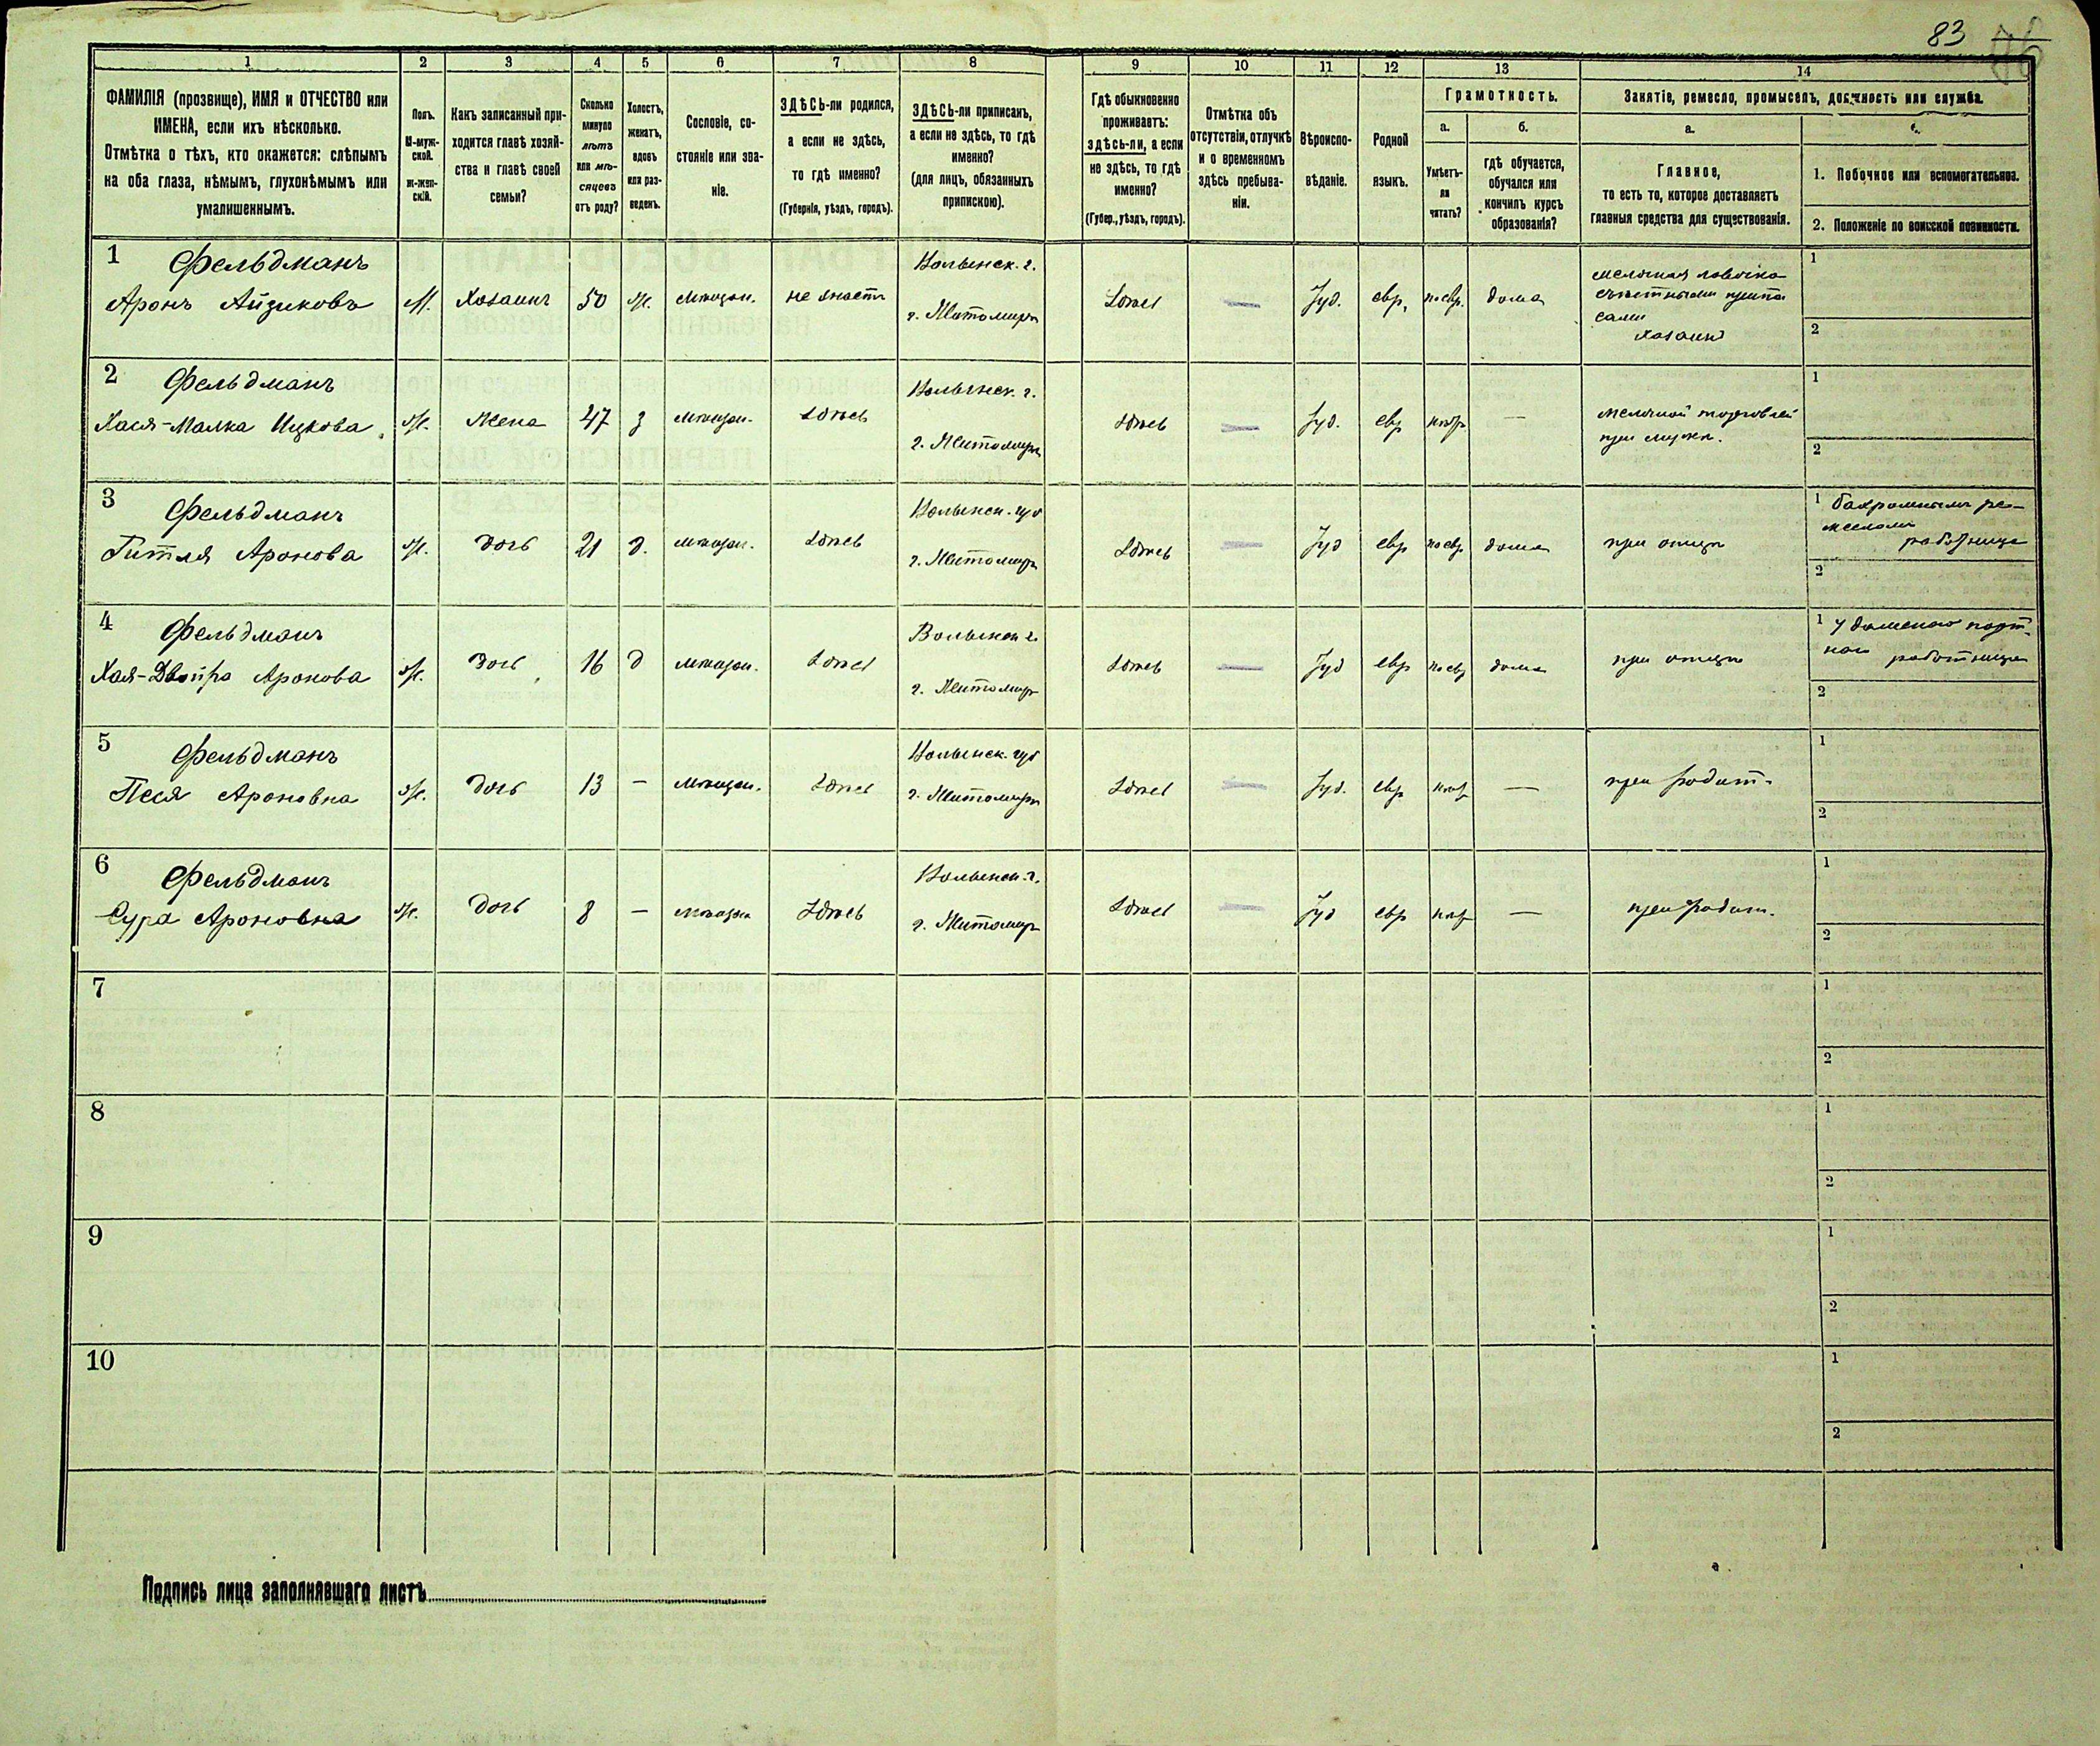 83
1 2 3 4 5 6 7 8 9 10 11 12 13 14
ФАМИЛІЯ (прозвище), ИМЯ и ОТЧЕСТВО или
ИМЕНА, если ихъ нѣсколько.
Отмѣтка о тѣхъ, кто окажется: слѣпымъ
на оба глаза, нѣмымъ, глухонѣмымъ или
умалишеннымъ.
Полъ.
М-муж-
ской.
Ж-жен-
скій.
Какъ записанный при-
ходится главѣ хозяй-
ства и главѣ своей
семьи?
Сколько
минуло
лѣтъ
или мѣ-
сяцевъ
отъ роду?
Холостъ,
женатъ,
вдовъ
или раз-
веденъ.
Сословіе, со-
стояніе или зва-
ніе.
ЗДѢСЬ-ли родился,
а если не здѣсь,
то гдѣ именно?
(Губернія, уѣздъ, городъ).
ЗДѢСЬ-ли приписан,
а если не здѣсь, то гдѣ
именно?
(для лицъ, обязанныхъ
припискою).
Гдѣ обыкновенно
проживаетъ:
здѣсь-ли, а если
не здѣсь, то гдѣ
именно?
(Губер., уѣздъ, городъ).
Отмѣтка объ
отсутствіи, отлучкѣ
и о временномъ
здѣсь пребыва-
ніи.
Вѣроиспо-
вѣданіе.
Родной
языкъ.
Грамотность.
а.
Умѣетъ-
ли
читать?
б.
гдѣ обучается,
обучался или
кончилъ курсъ
образованія?
Занятіе, ремесло, промыселъ, должность или служба.
а.
Главное,
то есть то, которое доставляетъ
главныя средства для существованія.
1. Побочное или вспомогательное.
2. Положеніе по воинской повинности.
1 Фельдманъ
Аронъ Айзиковъ М. Хозяинъ 50 ж. мѣщан. не знаетъ Волынск. г.
г. Житомиръ Здѣсь — Іуд. евр. по евр. дома мелочная лавочка
съѣстными припа
сами
Хозяинъ 1
2
2 Фельдманъ
Хася-Малка Ицкова Ж. Жена 47 з мѣщан. Здѣсь Волынск. г.
г. Житомиръ Здѣсь — Іуд. евр — мелочной торговлей
при мужѣ. 1
2
3 Фельдманъ
Гитля Аронова Ж. дочь 21 д. мѣщан. Здѣсь Волынск. губ
г. Житомиръ Здѣсь — Іуд евр по евр дома при отцѣ 1 бахромнымъ ре-
месломъ
работница
2
4 Фельдманъ
Хая-Двойра Аронова Ж. дочь 16 д мѣщан. Здѣсь Волынск г.
г. Житомиръ Здѣсь — Іуд евр по евр дома при отцѣ 1 У дамскаго порт-
ного работница
2
5 Фельдманъ
Песя Ароновна Ж. дочь 13 — мѣщан. Здѣсь Волынск. губ
г. Житомиръ Здѣсь — Іуд. евр — при родит. 1
2
6 Фельдманъ
Сура Ароновна Ж. дочь 8 — мѣщан Здѣсь Волынск. г.
г. Житомиръ Здѣсь — Іуд евр — при родит. 1
2
7 1
2
8 1
2
9 1
2
10 1
2
Подпись лица заполнявшаго листъ